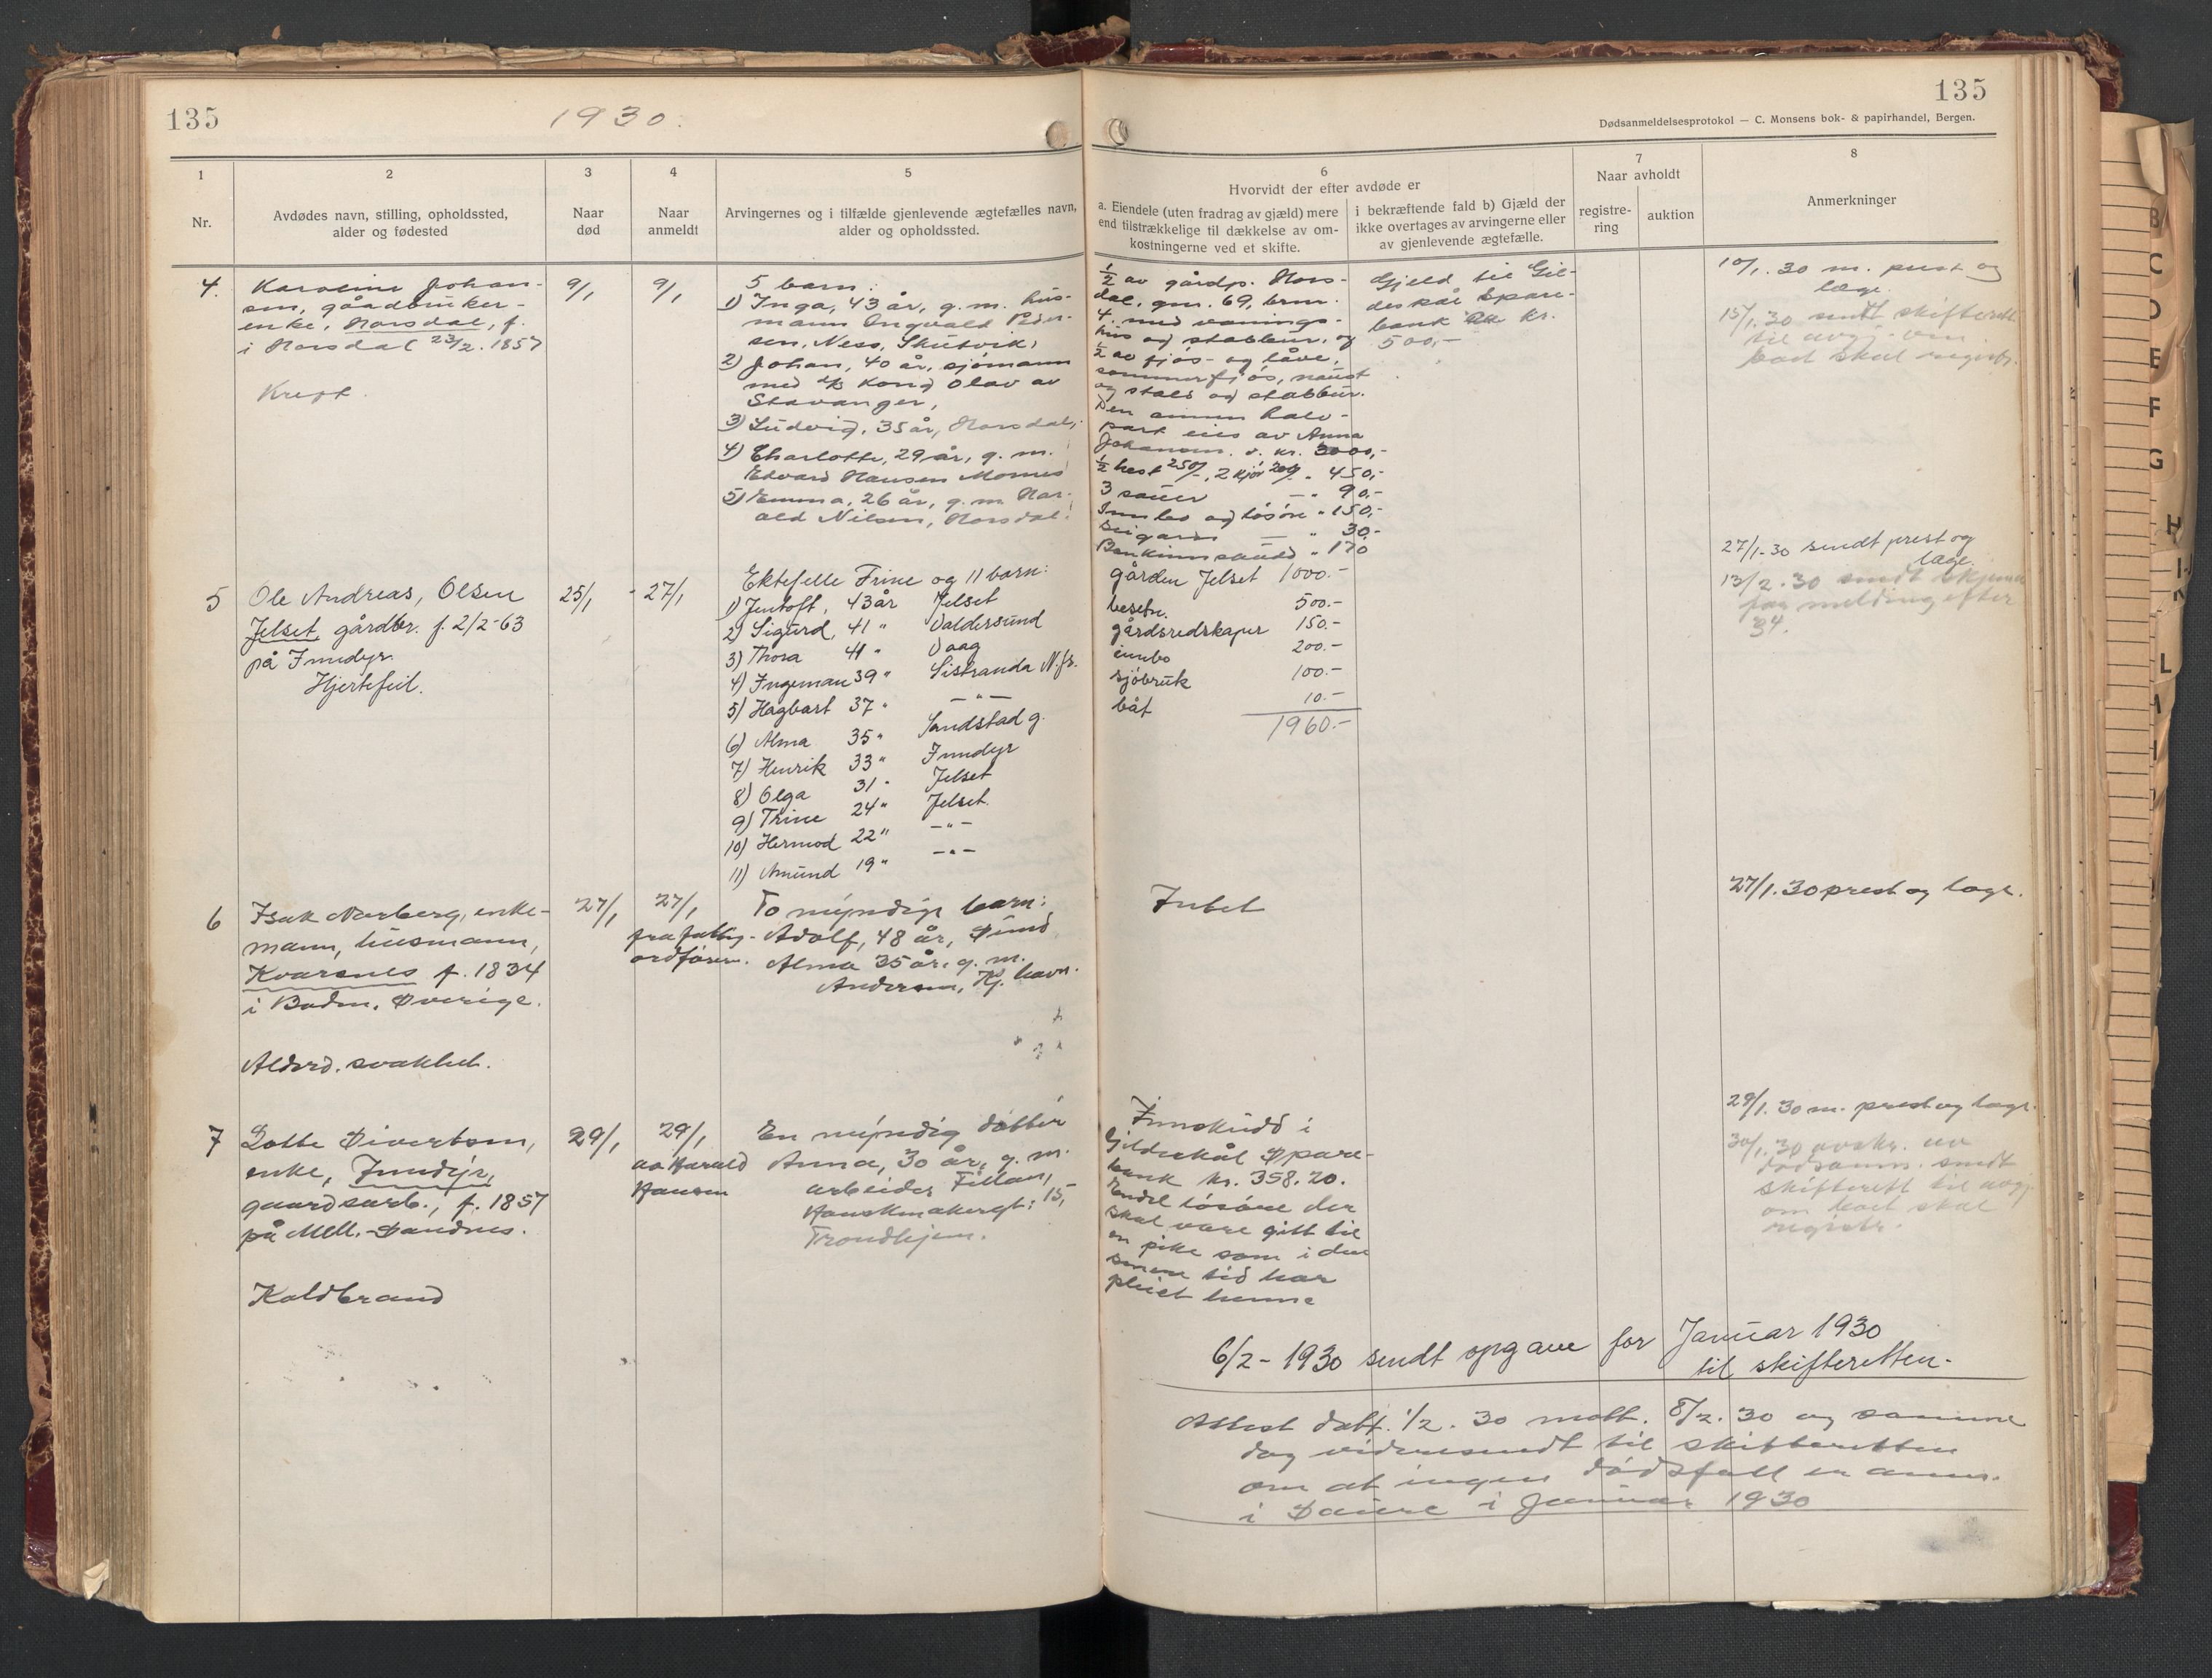 135
1930.
135
Dødsanmeldelsesprotokol — C. Monsens bok- & papirhandel, Bergen.
1
Nr.
2
Avdødes navn, stilling, opholdssted,
alder og fødested
3
Naar
død
4
Naar
anmeldt
5
Arvingernes og i tilfælde gjenlevende ægtefælles navn,
alder og opholdssted.
6
Hvorvidt der efter avdøde er
a. Eiendele (uten fradrag av gjæld) mere
end tilstrækkelige til dækkelse av om-
kostningerne ved et skifte.
i bekræftende fald b) Gjæld der
ikke overtages av arvingerne eller
av gjenlevende ægtefælle.
7
Naar avholdt
registre-
ring
auktion
8
Anmerkninger
4.
Karoline Johan-
sen, gårdbruker-
enke, Horsdal, f.
i Horsdal 23/2. 1857
Kreft.
9/1
9/1
5 barn:
1) Inga, 43 år, g. m. hus-
mann Ingvald Peder-
sen, Ness, Skutvik,
2) Johan, 40 år, sjømann
med d/s Kong Olav av
Stavanger,
3) Ludvig, 35 år, Horsdal,
4) Charlotte, 29 år, g. m.
Edvard Hansen Mornes
5) Emma, 26 år, g. m. Har-
ald Nilsen, Horsdal.
1/2 av gårdp. Hors-
dal, gnr. 69, brnr.
4. med vånings-
hus og stabbur, og
1/2 av fjøs- og låve,
sommerfjøs, naust
og stald og stabbur.
Den annen halv-
part eies av Anna
Johansen. v. kr. 3000,-
1/2 hest 250/-, 2 kjør 200/- " 450,-
3 sauer — " 90,-
Innbo og løsøre " 150,-
— " 30,-
Bankinnskudd " 170
Gjeld til Gil-
deskål Spare-
bank kr.
500,-
10/1. 30 m. prest og
læge.
15/1. 30 sendt skifterett
til avgj. om
boet skal registr.
5
Ole Andreas, Olsen
Jelset, gårdbr. f. 2/2-63
på Inndyr.
Hjertefeil.
25/1
27/1
Ektefelle Trine og 11 barn:
1) Jentoft, 43 år Jelset
2) Sigurd, 41 " Valdersund
3) Thora 41 " Vaag
4) Ingeman 39 " Sistranda N.fr.
5) Hagbart 37 " — " —
6) Alma 35 " Sandstad g.
7) Henrik 33 " Inndyr
8) Olga 31 " Jelset
9) Trine 24 " Jelset.
10) Hermod 22 " — " —
11) Amund 19 " — " —
gården Jelset 1000.-
besetn. 500.-
gårdsredskaper 150.-
innbo 200.-
sjøbruk 100.-
båt 10.-
1960.-
27/1-30 sendt prest og
læge.
13/2-30 sendt
melding efter
34.
6
Isak Norberg, enke-
mann, husmann,
Kvarsnes f. 1834
i Boden, Sverige.
Alderd. svakhet.
27/1
27/1
fra fattig-
ordfører.
To myndige barn:
Adolf, 48 år, Sund
Alma 35 år, g. m.
Andersen, Kj. havn.
Intet
27/1. 30 prest og læge.
7
Lotte Sivertsen,
enke, Inndyr,
gaardsarb., f. 1857
på Mell.-Sandnes.
Koldbrand
29/1
29/1
av Harald
Hansen
En myndig datter
Anna, 30 år, g. m.
arbeider Fillan,
Hanskmakergt: 15,
Trondhjem.
Innskudd i
Gildeskål Spare-
bank kr. 358.20.
Endel løsøre der
skal være gitt til
en pike som i den
senere tid har
pleiet henne
29/1. 30 m. prest og læge.
30/1. 30 avskr. av
dødsanm. sendt
skifterett til avgj.
om boet skal
registr.
6/2 - 1930 sendt opgave for Januar 1930
til skifteretten.
Attest datt. 1/2. 30 mott. 8/2. 30 og samme
dag videresendt til skifteretten
om at ingen dødsfall er anm.
i Saura i Januar 1930
B
C
D
E
F
G
H
L